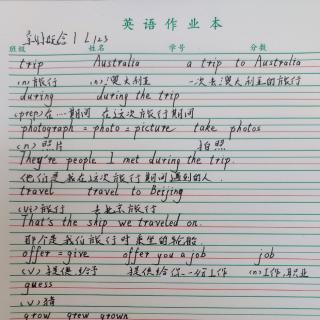 英语作业本
L123
班级 姓名 学号 分数
trip Australia a trip to Australia
(n)旅行 (n)澳大利亚 一次去澳大利亚的旅行
during during the trip
(prep)在…期间 在这次旅行期间
photograph = photo = picture take photos
(n)照片 拍照
They're people I met during the trip.
他们是我在这次旅行期间遇到的人.
travel travel to Beijing
(vi)旅行 去北京旅行
That's the ship we traveled on.
那个是我们旅行时乘坐的轮船
offer = give offer you a job job
(v)提供,给予 提供给你一份工作 (n)工作,职业
guess
(v)猜
grow grew grown